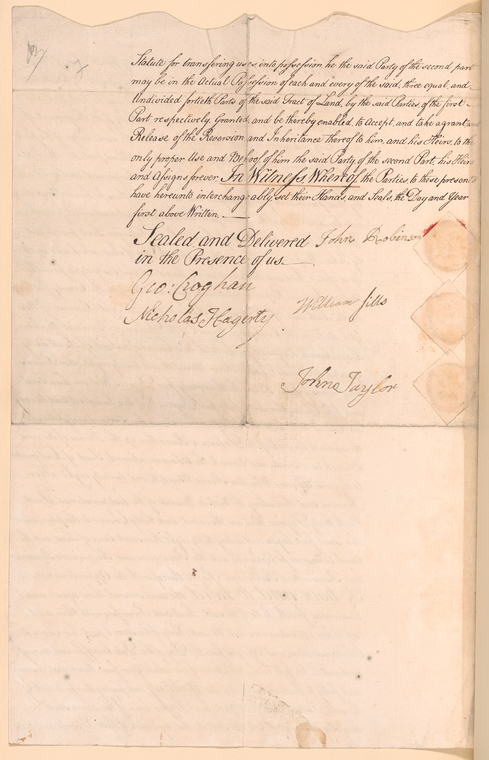 Statute for transferring uses into possession he the said Party of the second part
may be in the Actual Possession of each and every of the said, three equal, and
Undivided fortieth Parts of the said Tract of Land, by the said Parties of the first
Part respectively Granted, and be thereby enabled, to Accept, and take a grant and
Release of the Reversion and Inheritance thereof to him, and his Heirs, to the
only proper Use and Behoof of him the said Party of the second Part, his Heirs
and Assigns forever In Witness Whereof the Parties to these presents
have hereunto interchangeably set their Hands, and Seals, the Day and Year
first above Written. —
Sealed and Delivered John Robinson
in the Presence of us
Geo: Croghan
William
Nicholas Hagerty
John Taylor